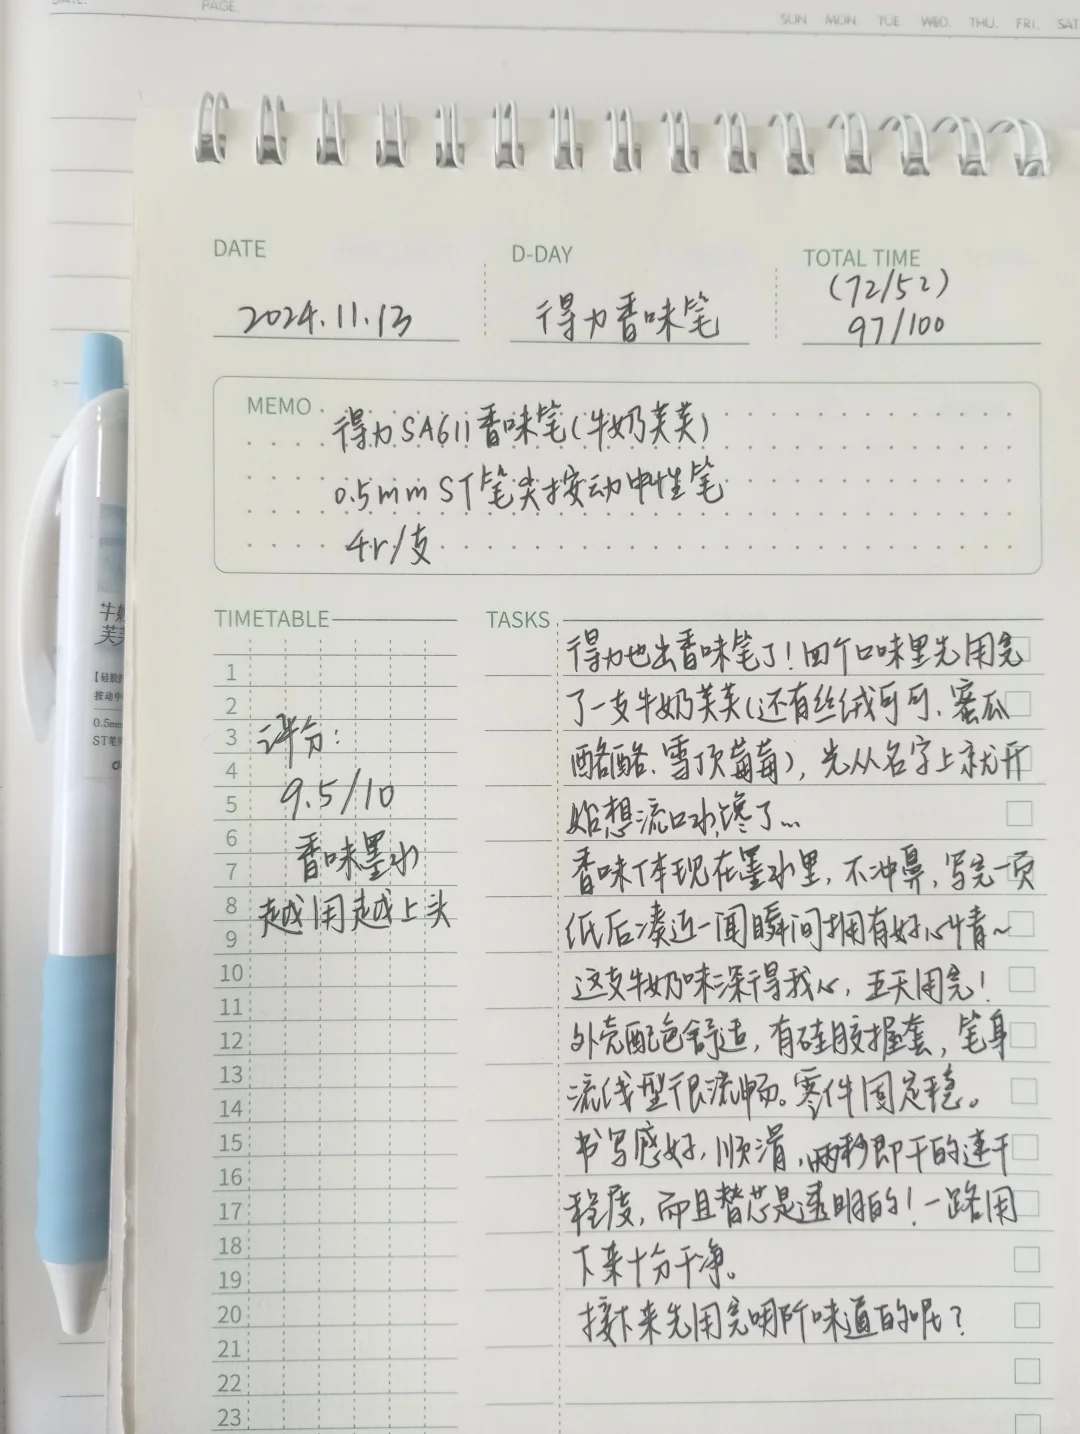 DATE.
PAGE.
SUN. MON. TUE. WED. THU. FRI. SAT
DATE
2024.11.13
D-DAY
得力香味笔
TOTAL TIME
(72/52)
97/100
MEMO
得力SA611香味笔(牛奶芙芙)
0.5mm ST笔尖按动中性笔
4r/支
TIMETABLE
1
2
3
4
5
6
7
8
9
10
11
12
13
14
15
16
17
18
19
20
21
22
23
评分:
9.5/10
香味墨水
越用越上头
TASKS
得力也出香味笔了!四个口味里先用完
了一支牛奶芙芙(还有丝绒可可、蜜瓜
酪酪、雪顶莓莓),光从名字上就开
始想流口水,馋了...
香味体现在墨水里,不冲鼻,写完一页
纸后凑近一闻瞬间拥有好心情~
这支牛奶味深得我心,五天用完!
外壳配色舒适,有硅胶握套,笔身
流线型很流畅。零件固定稳。
书写感好,顺滑,两秒即干的速干
程度,而且替芯是透明的!一路用
下来十分干净。
接下来先用完哪个味道的呢?
牛奶
芙芙
【硅胶
按动中
0.5mm
ST笔